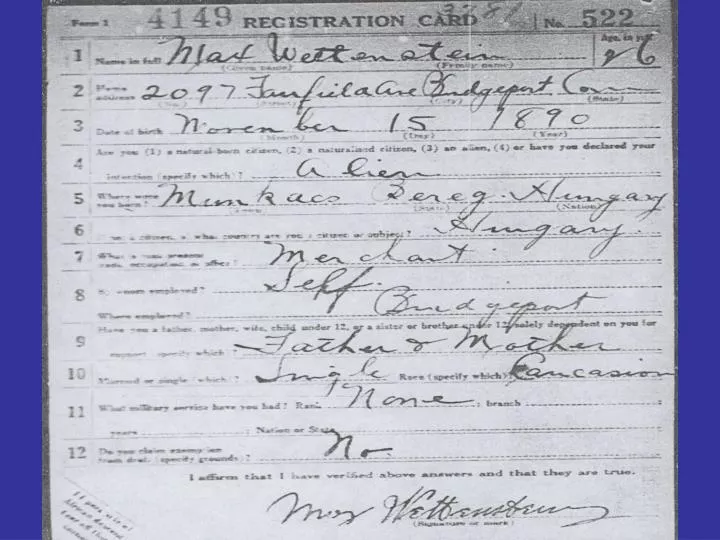 Form 1 4149 REGISTRATION CARD No. 522
1 Name in full Max Wettenstein Age, in yrs 26
(Given name) (Family name)
2 Home address 2097 Fairfield Ave Bridgeport Conn
(No.) (Street) (City) (State)
3 Date of birth November 15 1890
(Month) (Day) (Year)
Are you (1) a natural-born citizen, (2) a naturalized citizen, (3) an alien, (4) or have you declared your
4 intention (specify which)? Alien
5 Where were you born? Munkacs Bereg Hungary
(Town) (State) (Nation)
6 If not a citizen, of what country are you a citizen or subject? Hungary.
7 What is your present trade, occupation, or office? Merchant
8 By whom employed? Self
Where employed? Bridgeport
Have you a father, mother, wife, child under 12, or a sister or brother under 12, solely dependent on you for
9 support (specify which)? Father & Mother
10 Married or single (which)? Single Race (specify which)? Caucasion
11 What military service have you had? Rank None ; branch
years ; Nation or State
12 Do you claim exemption from draft (specify grounds)? No.
I affirm that I have verified above answers and that they are true.
Max Wettenstein
(Signature or mark)